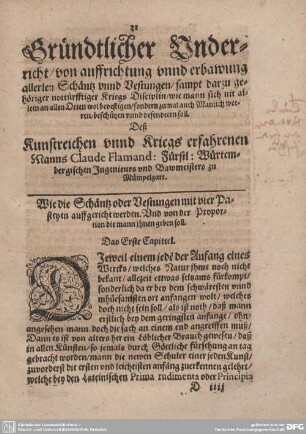 21
Gründtlicher Vnder-
richt / von auffrichtung vnnd erbawung
allerley Schäntz vnnd Vestungen / sampt darzu ge-
höriger notürfftiger Kriegs Disciplin / wie mann sich nit al-
lein an allen Orten wol bevestigen / sondern zumal auch Manlich weh-
ren, beschützen vnnd defendiern soll.
Deß
Kunstreichen vnnd Kriegs erfahrenen
Manns Claude Flamand: Fürstl: Würtem-
bergischen Ingenieurs vnd Bawmeisters zu
Mümpelgart.
Wie die Schäntz oder Vestungen mit vier Pa-
steyen auffgericht werden. Vnd von der Propor-
tion die mann jhnen geben soll.
Das Erste Capittel.
Dieweil einem jedē der Anfang eines
Wercks / welches Natur jhme noch nicht
bekant / allezeit etwas seltzams fürkompt /
sonderlich da er bey dem schwäresten vnnd
mühesamsten ort anfangen wolt / welches
doch nicht sein soll / als ist noth / daß mann
erstlich bey dem geringsten anfange / ohn-
angesehen mann doch die sach an einem end angreiffen müß /
Dann es ist von alters her ein Löblicher Brauch gewesen / daß
in allen Künsten / so jemals durch Göttliche fürsehung an tag
gebracht worden / mann die newen Schuler einer jeden Kunst /
zuvorderst die ersten vnd leichtisten anfäng zuerkennen gelehrt /
welche bey den Lateinischen Prima rudimenta oder Principia
D iiij